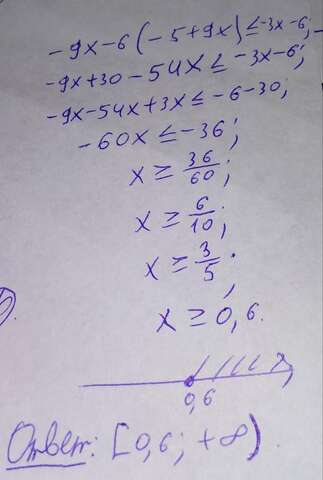 -9x-6(-5+9x)≤-3x-6;
-9x+30-54x≤-3x-6;
-9x-54x+3x≤-6-30;
-60x≤-36;
x≥36/60;
x≥6/10;
x≥3/5;
x≥0,6.
x
0,6
Ответ: [0,6; +∞).